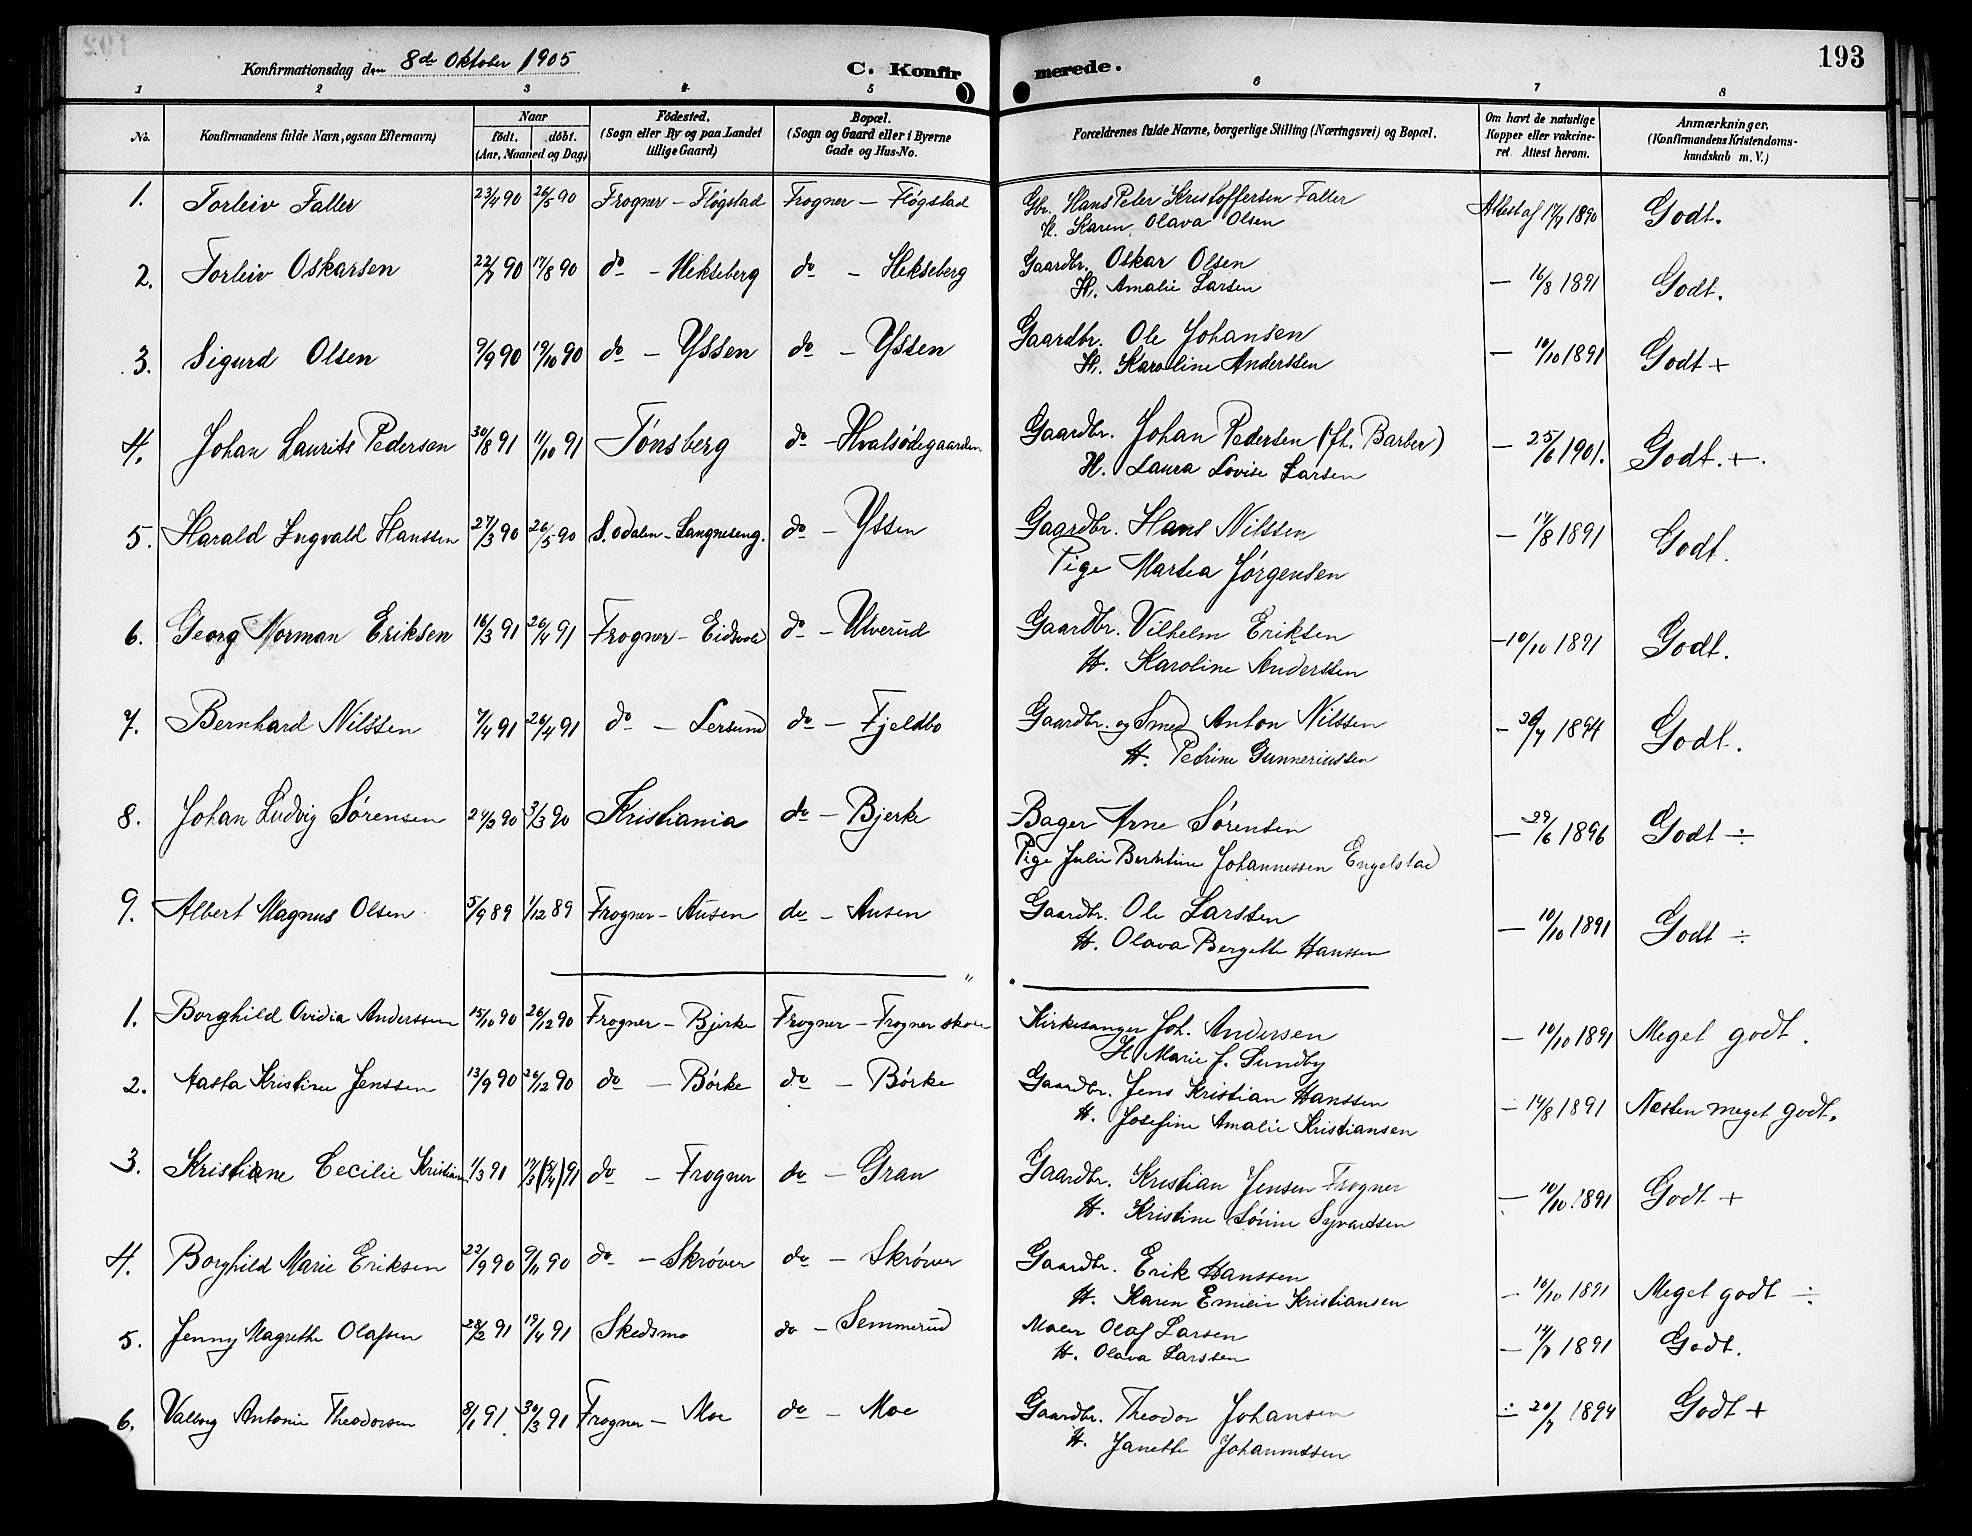 193
Konfirmationsdag den 8de Oktober 1905
C. Konfirmerede.
1 2 3 4 5 6 7 8
No. Konfirmandens fulde Navn, ogsaa Efternavn) Naar født. døbt. (Aar, Maaned og Dag) Fødested. (Sogn eller By og paa Landet tillige Gaard) Bopæl. (Sogn og Gaard eller i Byerne Gade og Hus-No. Forældrenes fulde Navne, borgerlige Stilling (Næringsvei) og Bopæl. Om havt de naturlige Kopper eller vakcineret. Attest herom. Anmærkninger. (Konfirmandens Kristendomskundskab m. V.)
1. Torleiv Faller 23/4 90 26/5 90 Frogner - Fløgstad Frogner - Fløgstad Gbr. Hans Peter Kristoffersen Faller Attest af 17/7 1890 Godt.
H. Karen Olava Olsen
2. Torleiv Oskarsen 22/7 90 17/8 90 do - Hekseberg do - Hekseberg Gaardbr. Oskar Olsen - 16/8 1891 Godt.
H. Amalie Larsen
3. Sigurd Olsen 9/9 90 19/10 90 do - Yssen do - Yssen Gaardbr. Ole Johansen - 10/10 1891 Godt +
H. Karoline Anderssen
4. Johan Laurits Pedersen 30/8 91 11/10 91 Tønsberg do - Hvalsødegaarden Gaardbr. Johan Pedersen (fh. Barber) - 25/6 1901. Godt. +.
H. Laura Lovise Larsen
5. Harald Ingvald Hanssen 27/3 90 26/5 90 S. Odalen - Langneseng. do - Yssen Gaardbr. Hans Nilssen - 17/8 1891 Godt.
Pige Martea Jørgensen
6. Georg Norman Eriksen 16/3 91 26/4 91 Frogner - Eidsvold do - Ulverud Gaardbr. Vilhelm Eriksen - 10/10 1891 Godt.
H. Karoline Anderssen
7. Bernhard Nilssen 7/4 91 26/4 91 do - Lersund do - Fjeldbo Gaardbr. og Smed Anton Nilssen 1894 Godt.
H. Petrine Gunneriussen
8. Johan Ludvig Sørensen 90 3/3 90 Kristiania do - Bjerke Bager Arne Sørensen - 29/6 1896 Godt ÷
Pige Julie Johannessen Engelstad
9. Albert Magnus Olsen 5/9 89 1/12 89 Frogner - Ausen do - Ausen Gaardbr. Ole Larssen - 10/10 1891 Godt ÷
H. Olava Bergette Hanssen
1. Borghild Ovidia Anderssen 15/10 90 26/12 90 Frogner - Bjerke Frogner - Frogner skole Kirkesanger Joh. Andersen - 10/10 1891 Meget godt.
H. Marie J. Sundby
2. Aasta Kristine Jenssen 13/9 90 26/12 90 do - Børke do - Børke Gaardbr. Jens Kristian Hanssen - 14/8 1891 Næsten meget godt.
H. Josefine Amalie Kristiansen
3. Kristiane Cecilie Kristian 1/3 91 91 do - Frogner do - Gran Gaardbr. Kristian Jensen Frogner - 10/10. 1891 Godt +
H. Kristine Sørine Syvardsen
4. Borghild Marie Eriksen 22/9 90 9/11 90 do - Skrøver do - Skrøver Gaardbr. Erik Hanssen - 10/10 1891 Meget godt ÷
H. Karen Emilie Kristiansen
5. Jenny Magrethe Olafsen 28/2 91 19/4 91 Skedsmo do - Semmerud Maler Olaf Larsen 1891 Godt.
H. Olava Larssen
6. Valborg Antonie Theodorsen 8/1 91. 30/3 91 Frogner - Moe do - Moe Gaardbr. Theodor Johansen ÷ 20/7 1894 Godt +
H. Janette Johannessen